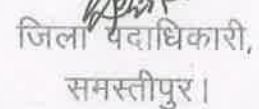 जिला पदाधिकारी,
समस्तीपुर।